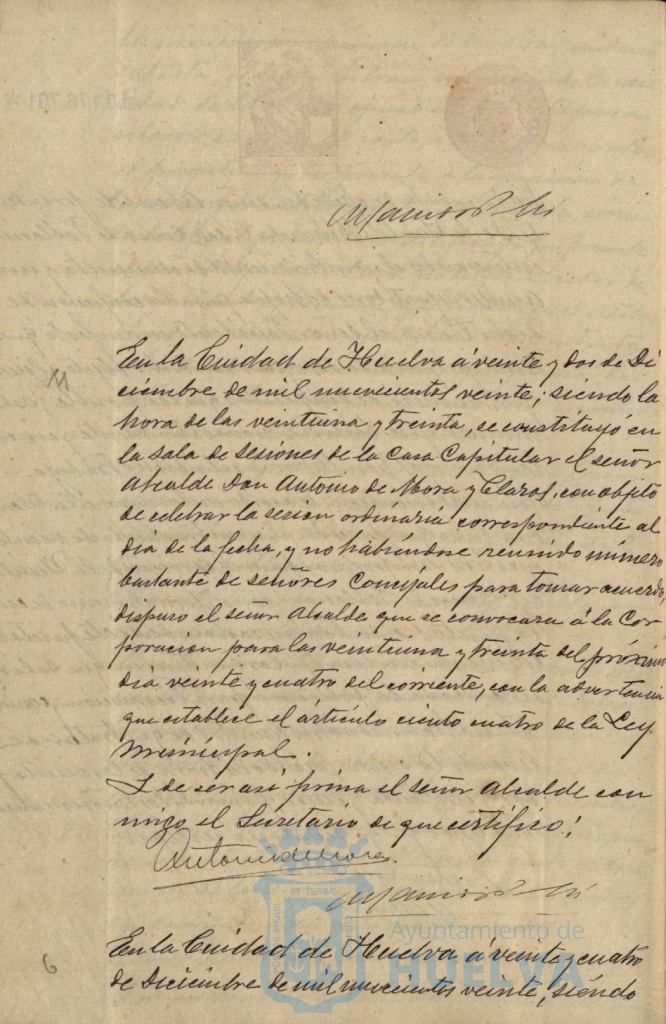 En la Cuidad de Huelva á veinte y dos de Di
ciembre de mil nuevecientos veinte; siendo la
hora de las veintiuna y treinta, se constituyó en
la sala de sesiones de la Casa Capitular el señor
Alcalde Don Antonio de Mora y Claros, con objeto
de celebrar la sesion ordinaria correspondiente al
dia de la fecha, y no habiéndose reunido número
bastante de señores Concejales para tomar acuerdo,
dispuso el señor Alcalde que se convocara á la Cor
poracion para las veintiuna y treinta del próximo
dia veinte y cuatro del corriente, con la advertencia
que establece el artículo ciento cuatro de la Ley
Municipal.
Y de ser asi firma el señor Alcalde con
migo el Secretario de que certifico:
Antonio de Mora
ET TERRÆ
MARIS
Ayuntamiento de
HUELVA
6
En la Cuidad de Huelva á veinte y cuatro
de Diciembre de mil nuevecientos veinte, siendo